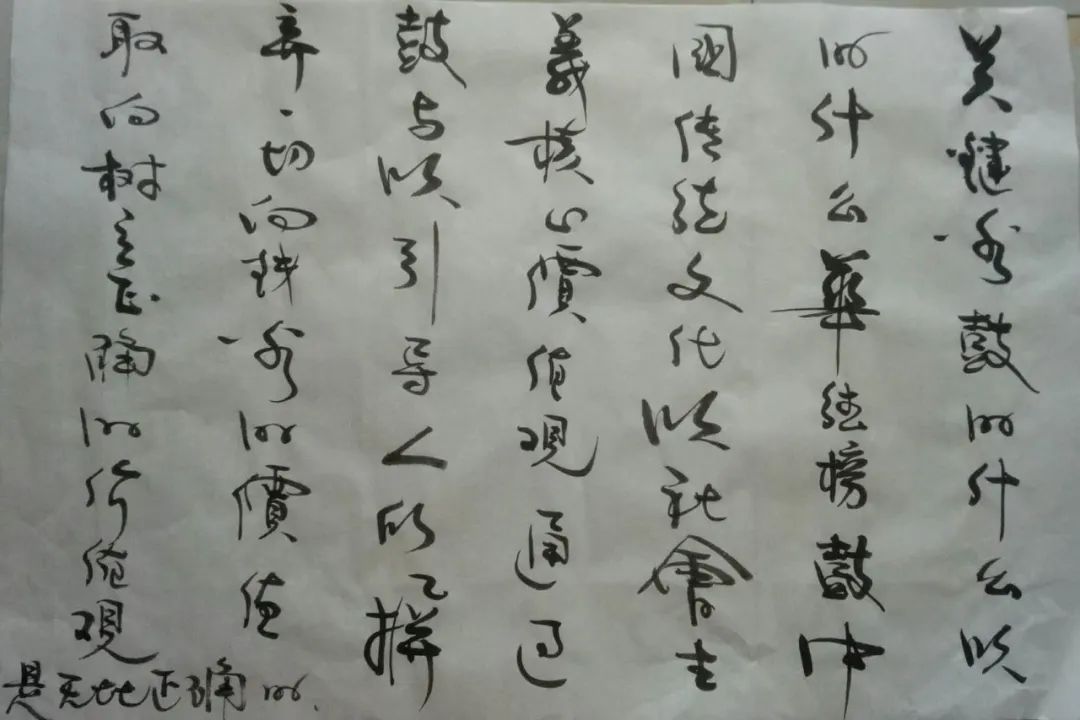 关键看鼓的什么以
的什么華榜鼓中
國传统文化以社會主
義核心價值观通过
鼓与以引导人摒
弃一切向钱看的價值
取向树立正确的价值观
是无比正确的